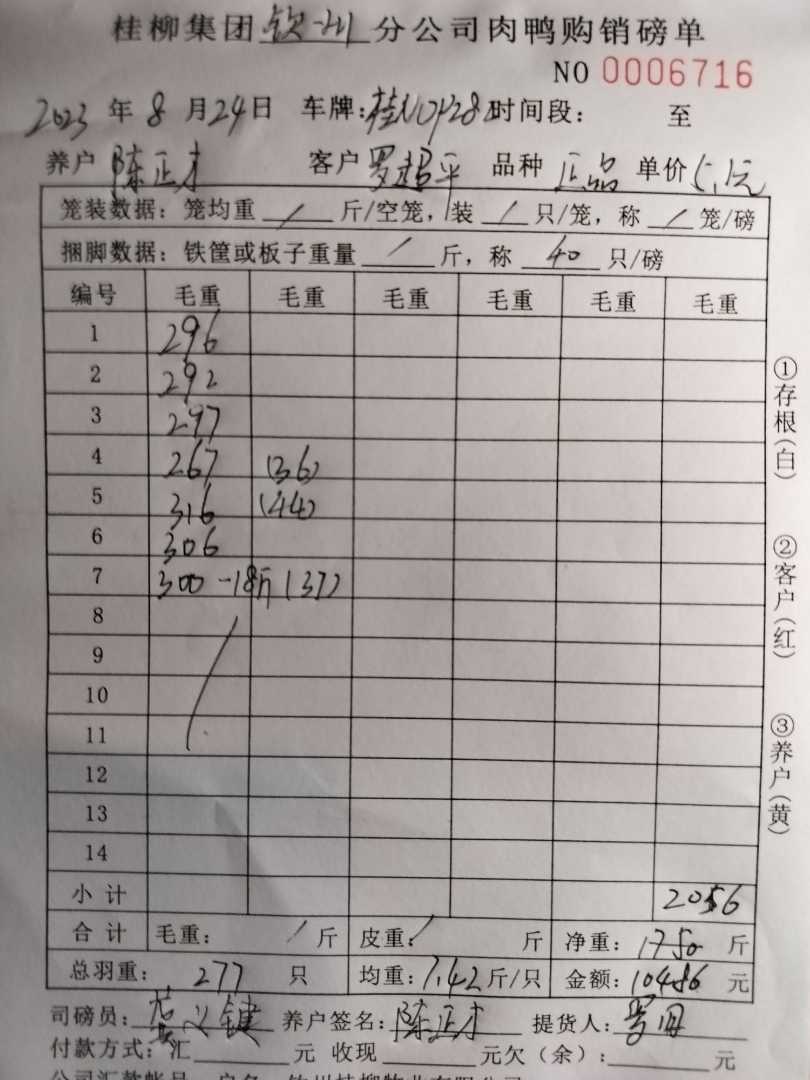 桂柳集团钦州分公司肉鸭购销磅单
NO 0006716
2023年8月24日 车牌:桂N0P28 时间段: 至
养户 陈正才 客户 罗超平 品种 正品 单价5.1元
笼装数据:笼均重 / 斤/空笼,装 / 只/笼,称 / 笼/磅
捆脚数据:铁筐或板子重量 / 斤,称 40 只/磅
编号 毛重 毛重 毛重 毛重 毛重 毛重
1 296
2 292
3 297
4 267 (36)
5 316 (44)
6 306
7 300 -18斤 (37)
8
9
10
11
12
13
14
小计 2056
合计 毛重: / 斤 皮重: / 斤 净重: 斤
总羽重: 277 只 均重:7.42斤/只 金额:10486元
司磅员: 养户签名:陈正才 提货人:
付款方式:汇 元 收现 元欠(余): 元
①存根(白)
②客户(红)
③养户(黄)